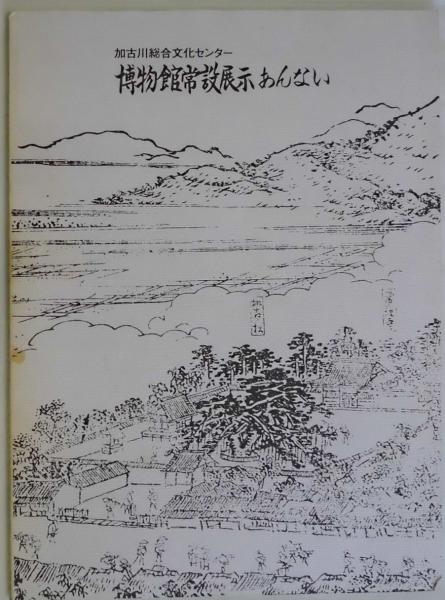 加古川総合文化センター
博物館常設展示あんない